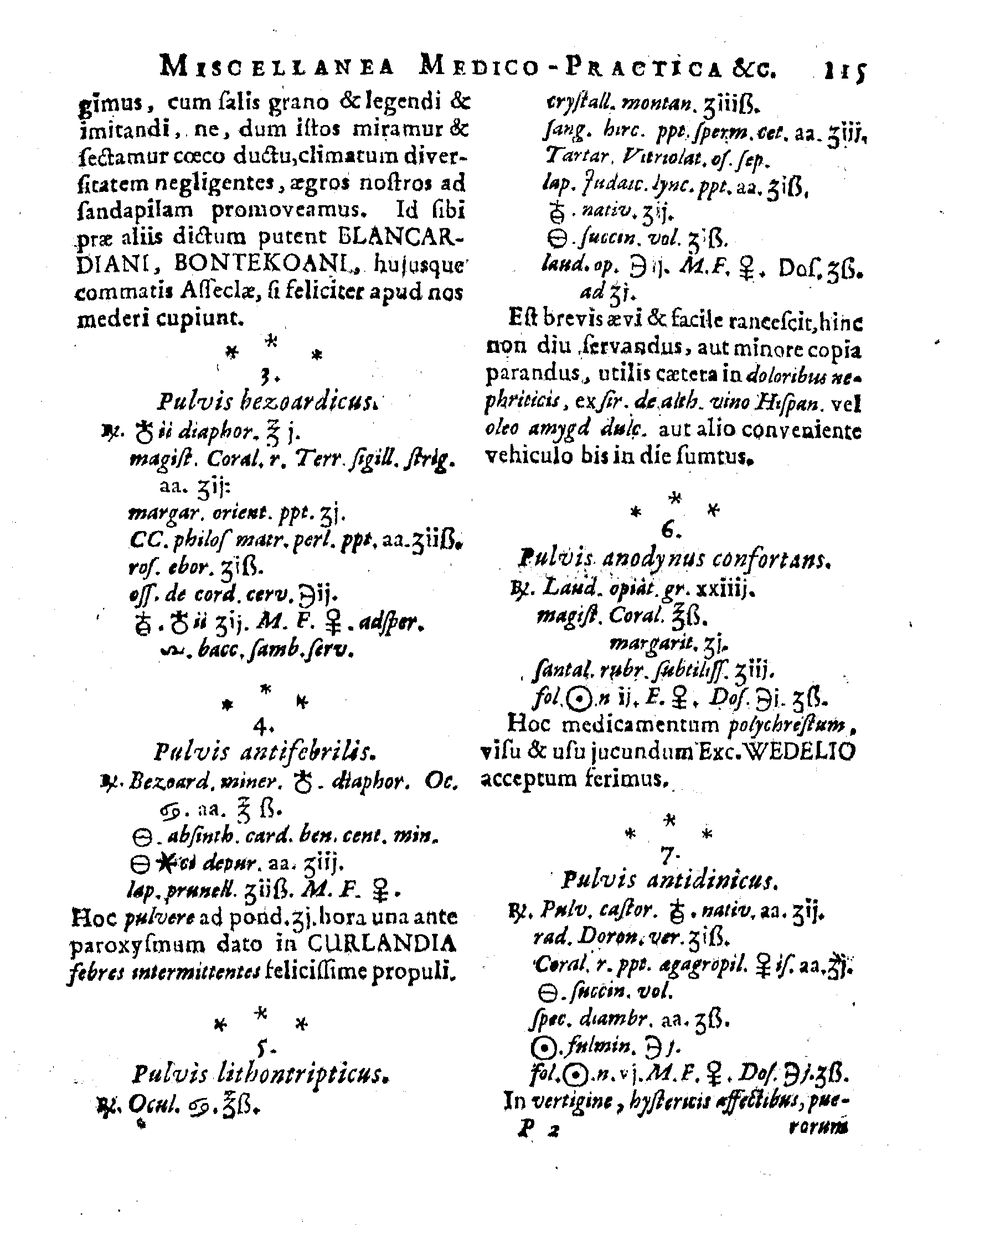 MISCELLANEA MEDICO-PRACTICA &c. 115
gimus, cum ſalis grano & legendi &
imitandi, ne, dum iſtos miramur &
ſectamur cœco ductu, climatum diver-
ſitatem negligentes, ægros noſtros ad
ſandapilam promoveamus. Id ſibi
præ aliis dictum putent BLANCAR-
DIANI, BONTEKOANI, hujusque
commatis Aſſeclæ, ſi feliciter apud nos
mederi cupiunt.
* * *
3.
Pulvis bezoardicus.
℞. ♁ii diaphor. ℥ j.
magiſt. Coral. r. Terr. ſigill. ſtrig.
aa. ʒij:
margar. orient. ppt. ʒj.
CC. philoſ matr. perl. ppt. aa. ʒiiß.
roſ. ebor. ʒiß.
oſſ. de cord. cerv. ℈ij.
🜍. ♁ii ʒij. M. F. ♀. adſper.
. bacc. ſamb. ſerv.
* * *
4.
Pulvis antifebrilis.
℞. Bezoard. miner. ♁. diaphor. Oc.
♋. aa. ℥ ß.
⊖. abſinth. card. ben. cent. min.
⊖ *ci depur. aa. ʒiij.
lap. prunell. ʒiiß. M. F. ♀.
Hoc pulvere ad pond. ʒj. hora una ante
paroxyſmum dato in CURLANDIA
febres intermittentes feliciſſime propuli.
* * *
5.
Pulvis lithontripticus.
℞. Ocul. ♋. ℥ß.
cryſtall. montan. ʒiiiß.
ſang. hirc. ppt. ſperm. cet. aa. ʒiij.
Tartar. Vitriolat. oſ. ſep.
lap. Judaic. lync. ppt. aa. ʒiß.
🜍. nativ. ʒij.
⊖. ſuccin. vol. ʒiß.
laud. op. ℈ij. M. F. ♀. Doſ. ʒß.
ad ʒj.
Eſt brevis ævi & facile ranceſcit, hinc
non diu ſervandus, aut minore copia
parandus, utilis cætera in doloribus ne-
phriticis, ex ſir. de alth. vino Hiſpan. vel
oleo amygd dulc. aut alio conveniente
vehiculo bis in die ſumtus.
* * *
6.
Pulvis anodynus confortans.
℞. Laud. opiat. gr. xxiiij.
magiſt. Coral. ℥ß.
margarit. ʒj.
ſantal. rubr. ſubtiliſſ. ʒiij.
fol. ☉. n ij. F. ♀. Doſ. ℈i. ʒß.
Hoc medicamentum polychreſtum,
viſu & uſu jucundum Exc. WEDELIO
acceptum ferimus.
* * *
7.
Pulvis antidinicus.
℞. Pulv. caſtor. 🜍. nativ. aa. ʒij.
rad. Doron. ver. ʒiß.
Coral. r. ppt. agagropil. ♀iſ. aa. ʒj.
⊖. ſuccin. vol.
ſpec. diambr. aa. ʒß.
☉. fulmin. ℈j.
fol. ☉. n. vj. M. F. ♀. Doſ. ℈j. ʒß.
In vertigine, hyſtericis affectibus, pue-
P 2 rorum